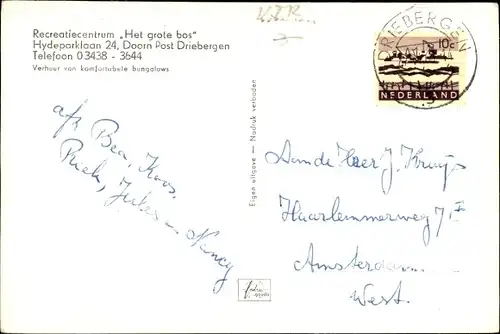 Recreatiecentrum „Het grote bos"
Hydeparklaan 24, Doorn Post Driebergen
Telefoon 03438 - 3644
Verhuur van komfortabele bungalows
DRIEBERGEN
10c
NEDERLAND
Eigen uitgave — Nadruk verboden
afz Bea, Koos,
Riek, en Nancy
Aan de Heer J. Kruijs
Haarlemmerweg 71 I
Amsterdam
West.